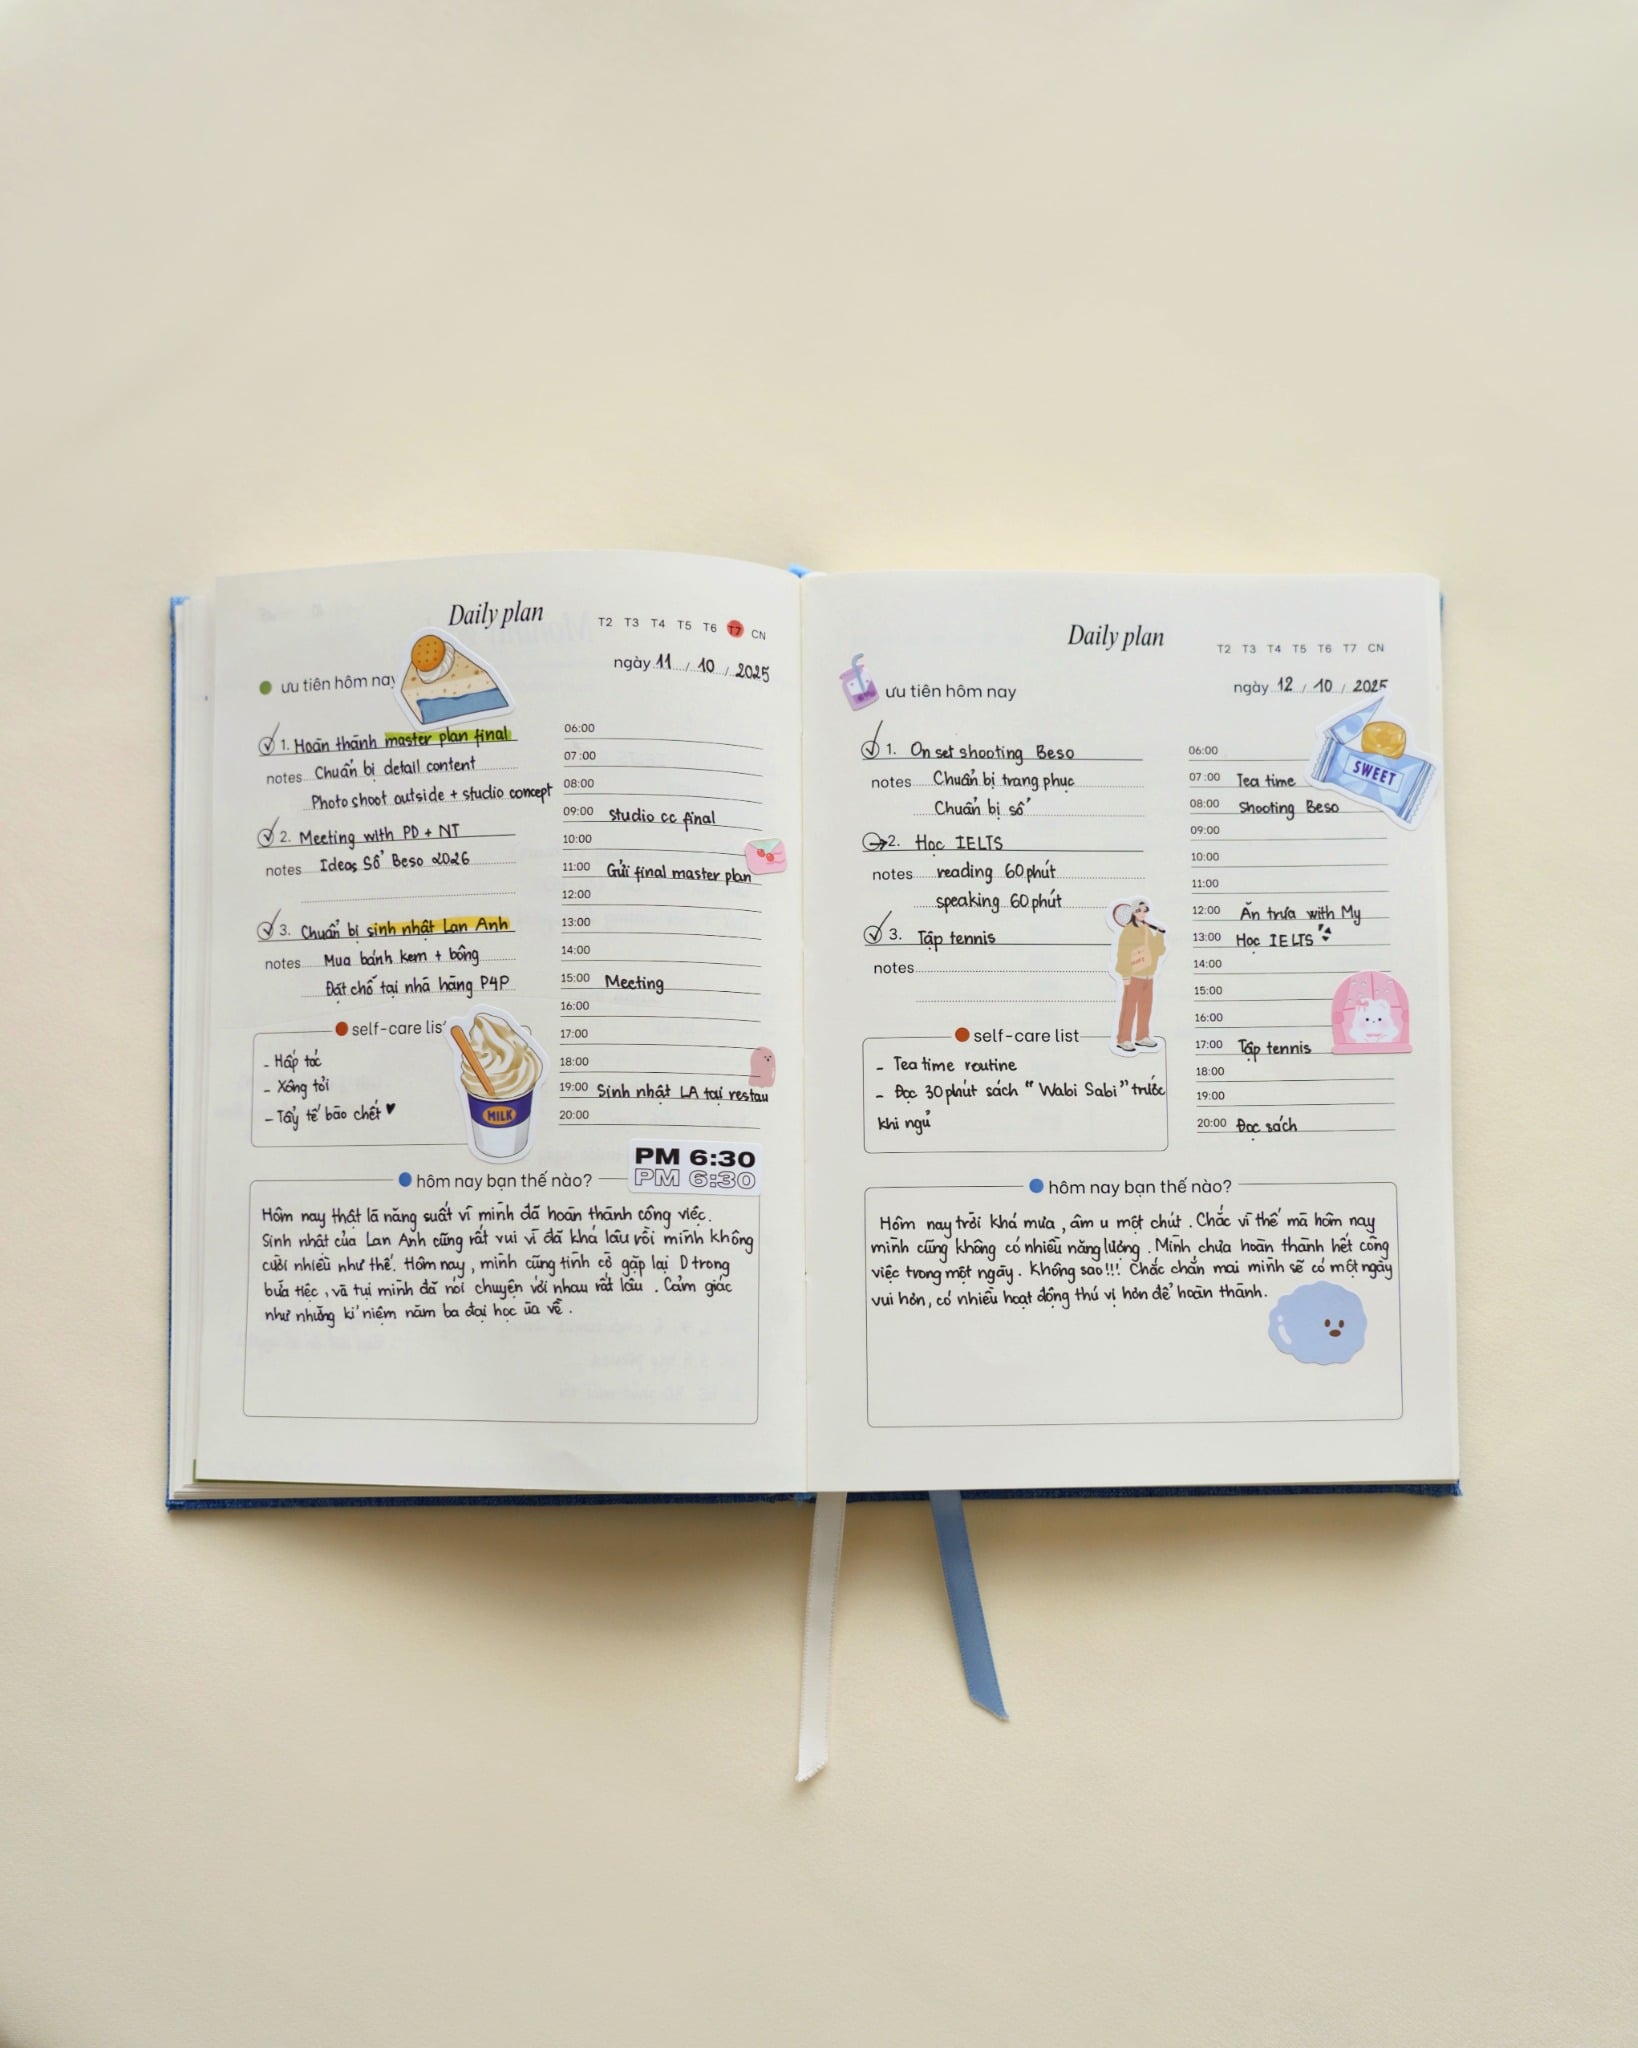 Daily plan
T2 T3 T4 T5 T6 T7 CN
ngày 11 / 10 / 2025
ưu tiên hôm nay
1. Hoàn thành master plan final
notes Chuẩn bị detail content
Photo shoot outside + studio concept
2. Meeting with PD + NT
notes Ideas Sổ Beso 2026
3. Chuẩn bị sinh nhật Lan Anh
notes Mua bánh kem + bông
Đặt chỗ tại nhà hàng P4P
06:00
07:00
08:00
09:00 studio cc final
10:00
11:00 Gửi final master plan
12:00
13:00
14:00
15:00 Meeting
16:00
17:00
18:00
19:00 Sinh nhật LA tại restau
20:00
self-care lis
- Hấp tóc
- Xông tỏi
- Tẩy tế bào chết ♥
MILK
PM 6:30
PM 6:30
hôm nay bạn thế nào?
Hôm nay thật là năng suất vì mình đã hoàn thành công việc.
Sinh nhật của Lan Anh cũng rất vui vì đã khá lâu rồi mình không
cười nhiều như thế. Hôm nay, mình cũng tình cờ gặp lại D trong
bữa tiệc, và tụi mình đã nói chuyện với nhau rất lâu. Cảm giác
như những kỉ niệm năm ba đại học ùa về.
Daily plan
T2 T3 T4 T5 T6 T7 CN
ngày 12 / 10 / 2025
ưu tiên hôm nay
1. On set shooting Beso
notes Chuẩn bị trang phục
Chuẩn bị sổ
2. Học IELTS
notes reading 60 phút
speaking 60 phút
3. Tập tennis
notes
SWEET
06:00
07:00 Tea time
08:00 Shooting Beso
09:00
10:00
11:00
12:00 Ăn trưa with My
13:00 Học IELTS
14:00
15:00
16:00
17:00 Tập tennis
18:00
19:00
20:00 Đọc sách
self-care list
- Tea time routine
- Đọc 30 phút sách "Wabi Sabi" trước
khi ngủ
hôm nay bạn thế nào?
Hôm nay trời khá mưa, âm u một chút. Chắc vì thế mà hôm nay
mình cũng không có nhiều năng lượng. Mình chưa hoàn thành hết công
việc trong một ngày. Không sao!!! Chắc chắn mai mình sẽ có một ngày
vui hơn, có nhiều hoạt động thú vị hơn để hoàn thành.